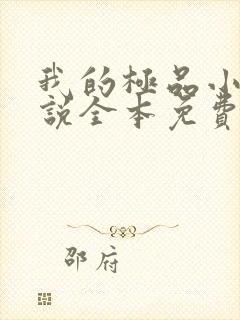 我的極品小
說全本免費
邵府